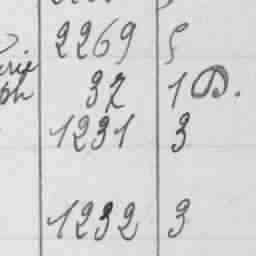 2269 5
32 1 D.
1231 3
1232 3